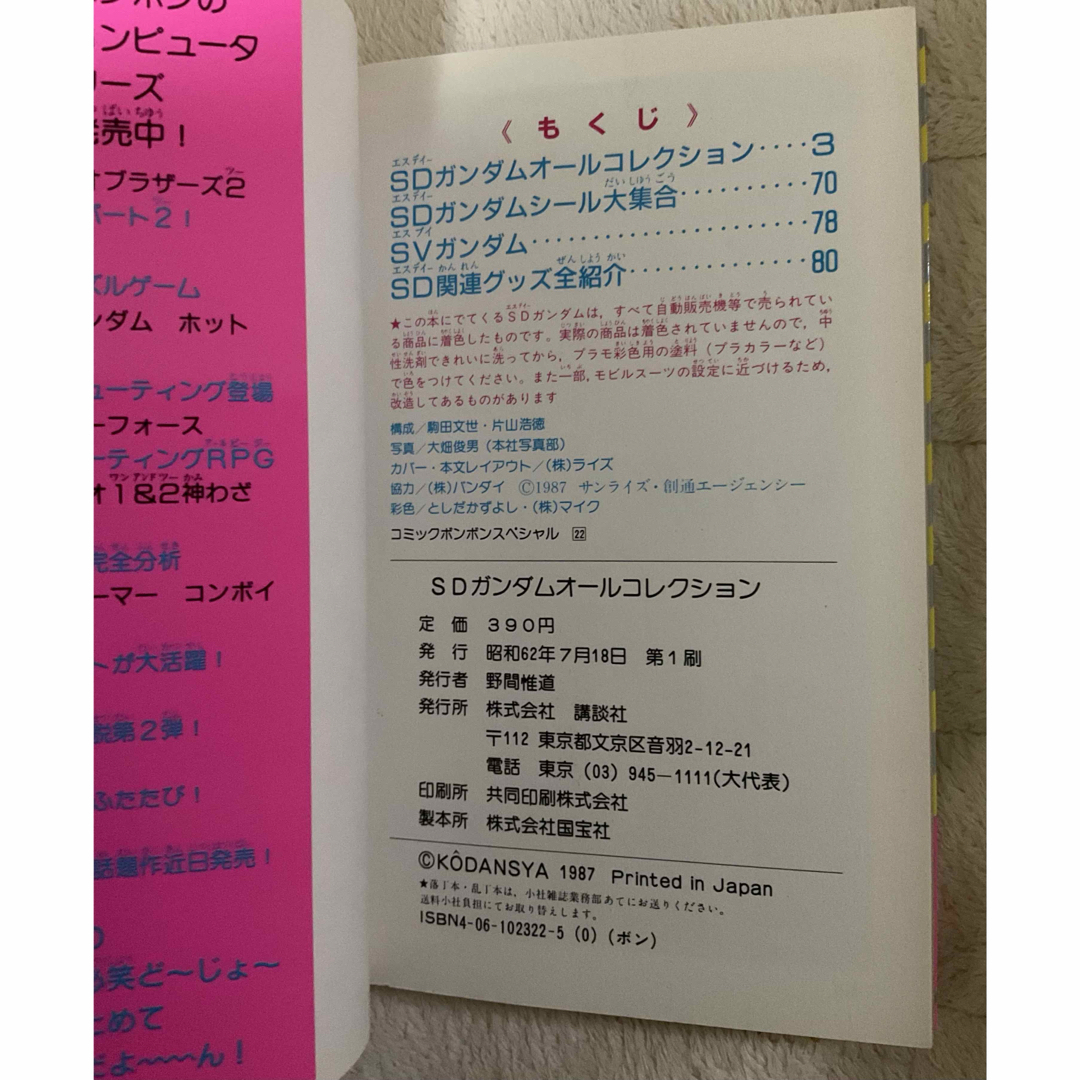 ンピュータ
リーズ
ばいちゅう
発売中！
ブラザーズ2
パート2！
ルゲーム
ンダム ホット
ューティング登場
ーフォース
ーティングRPG
1&2神わざ
完全分析
ーマー コンボイ
トが大活躍！
第2弾！
ふたたび！
話題作近日発売！
笑ど〜じょ〜
とめて
だよ〜〜〜ん！
《もくじ》
エスディー
SDガンダムオールコレクション‥‥3
エスディー だいしゅうごう
SDガンダムシール大集合‥‥‥‥‥70
エスブイ
SVガンダム‥‥‥‥‥‥‥‥‥‥78
エスディー かんれん ぜんしょうかい
SD関連グッズ全紹介‥‥‥‥‥‥‥80
★この本にでてくるSDガンダムは，すべて自動販売機等で売られてい
る商品に着色したものです。実際の商品は着色されていませんので，中
性洗剤できれいに洗ってから，プラモ彩色用の塗料（プラカラーなど）
で色をつけてください。また一部，モビルスーツの設定に近づけるため，
改造してあるものがあります
構成／駒田文世・片山浩徳
写真／大畑俊男（本社写真部）
カバー・本文レイアウト／（株）ライズ
協力／（株）バンダイ ©1987 サンライズ・創通エージェンシー
彩色／としだかずよし・（株）マイク
コミックボンボンスペシャル 22
SDガンダムオールコレクション
定 価 390円
発 行 昭和62年7月18日 第1刷
発行者 野間惟道
発行所 株式会社 講談社
〒112 東京都文京区音羽2-12-21
電話 東京（03）945—1111（大代表）
印刷所 共同印刷株式会社
製本所 株式会社国宝社
©KÔDANSYA 1987 Printed in Japan
★落丁本・乱丁本は，小社雑誌業務部あてにお送りください。
送料小社負担にてお取り替えします。
ISBN4-06-102322-5 (0) (ボン)